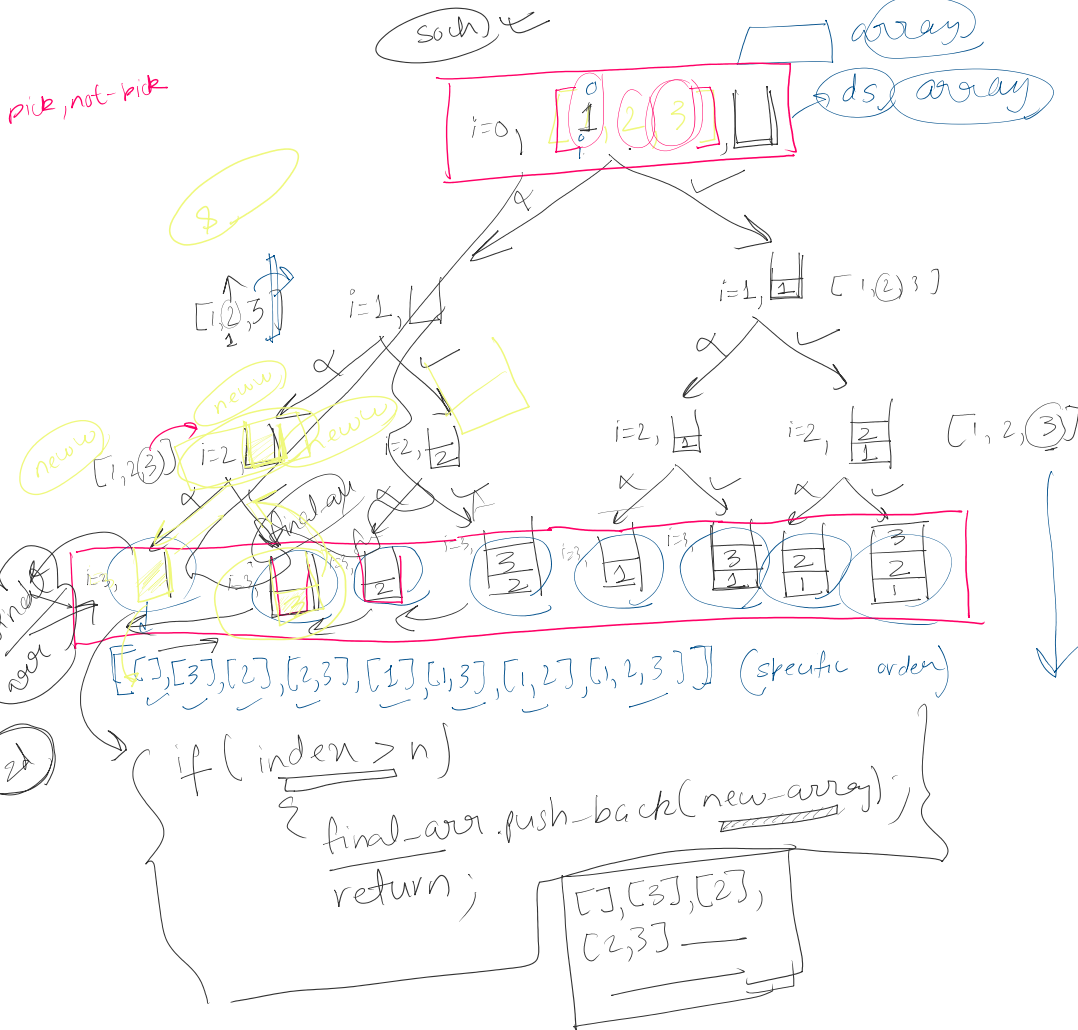 soch
array
pick, not-pick
ds, array
0
i=0, [1, 2, 3],
8
[1, 2, 3]
1
i=1,
i=1, 1 [1, 2, 3]
neww
neww
neww
[1, 2, 3] i=2,
i=2, 2
i=2, 1
i=2, 2 1
[1, 2, 3]
final-arr
i=3,
i=3, 3
i=3, 2
i=3, 3 2
i=3, 1
i=3, 3 1
2 1
3 2 1
final arr
[[], [3], [2], [2,3], [1], [1,3], [1,2], [1, 2, 3]] (specific order)
2d
if (index > n)
{
final_arr.push_back(new_array);
return;
}
[], [3], [2],
[2,3]